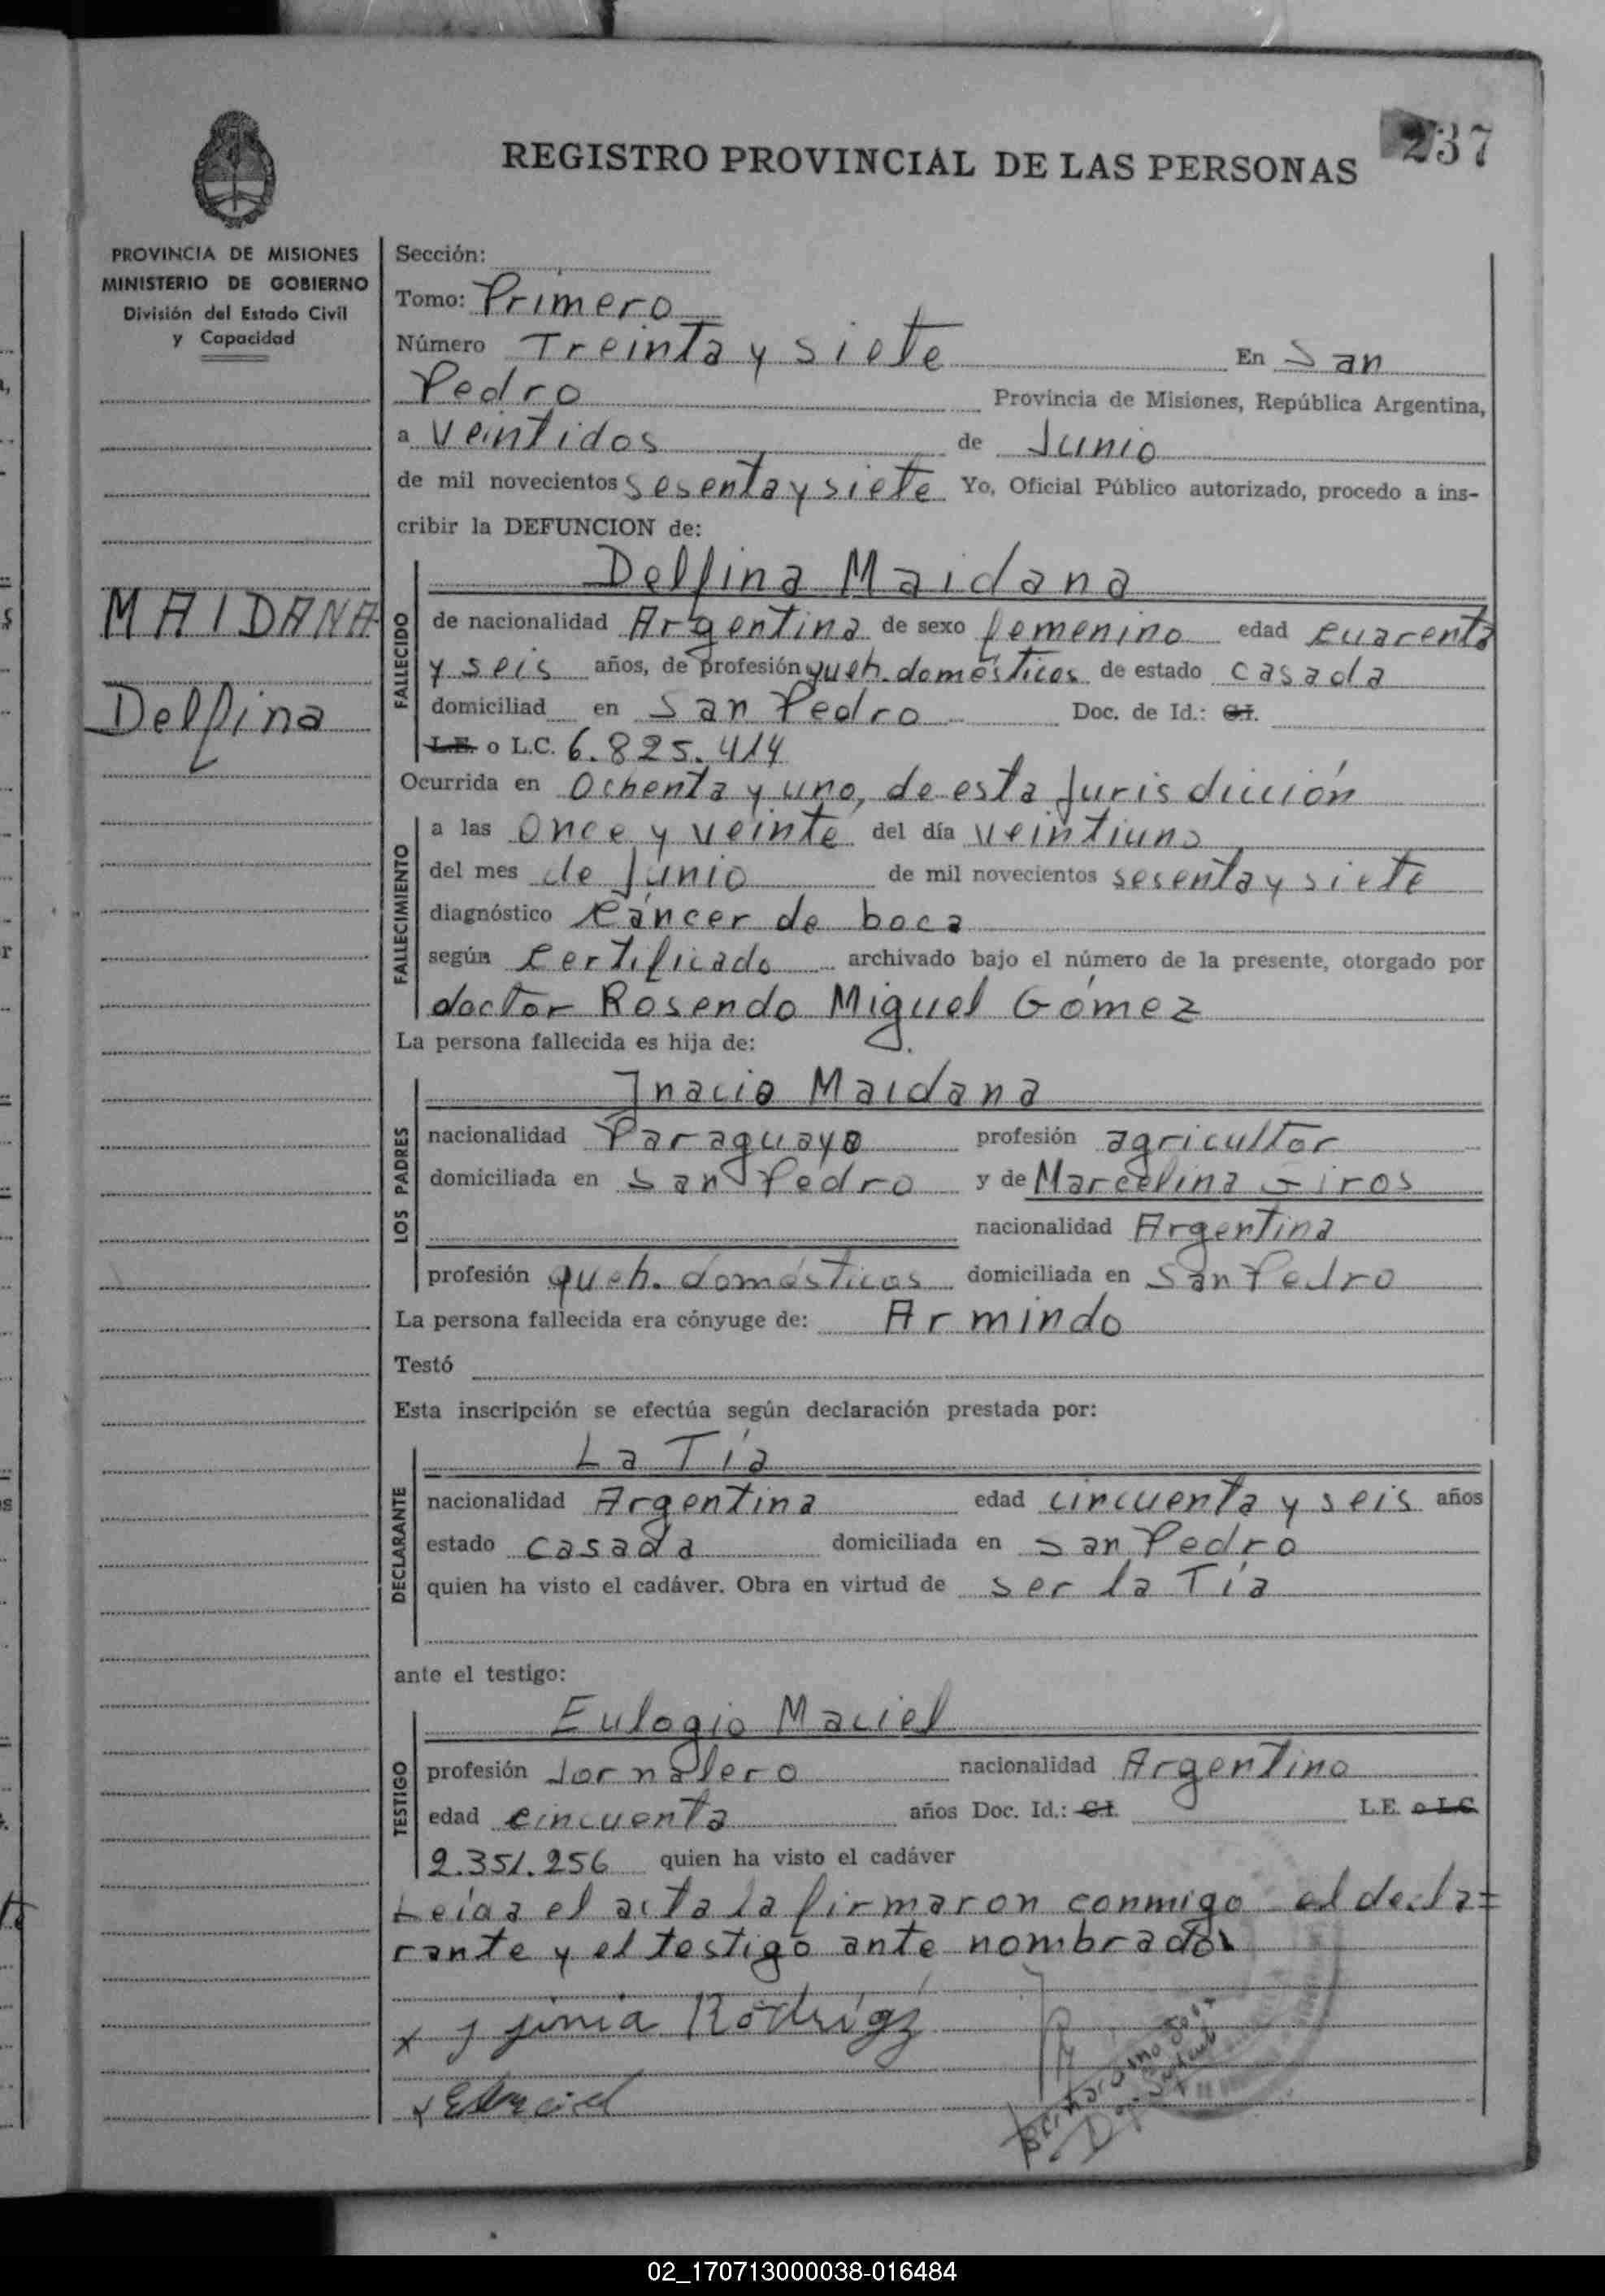 237
REGISTRO PROVINCIAL DE LAS PERSONAS
PROVINCIA DE MISIONES
MINISTERIO DE GOBIERNO
División del Estado Civil
y Capacidad
MAIDANA
Delfina
Sección:
Tomo: Primero
Número Treinta y siete En San
Pedro Provincia de Misiones, República Argentina,
a Veintidos de Junio
de mil novecientos sesenta y siete Yo, Oficial Público autorizado, procedo a ins-
cribir la DEFUNCION de:
FALLECIDO
Delfina Maidana
de nacionalidad Argentina de sexo femenino edad cuarenta
y seis años, de profesión queh. domésticos de estado casada
domiciliad en San Pedro Doc. de Id.: C.I.
L.E. o L.C. 6.825.414
Ocurrida en Ochenta y uno, de esta Jurisdicción
FALLECIMIENTO
a las Once y veinte del día veintiuno
del mes de Junio de mil novecientos sesenta y siete
diagnóstico Cáncer de boca
según Certificado archivado bajo el número de la presente, otorgado por
doctor Rosendo Miguel Gómez
La persona fallecida es hija de:
LOS PADRES
Inacio Maidana
nacionalidad Paraguayo profesión agricultor
domiciliada en San Pedro y de Marcelina Giros
nacionalidad Argentina
profesión queh. domésticos domiciliada en San Pedro
La persona fallecida era cónyuge de: Armindo
Testó
Esta inscripción se efectúa según declaración prestada por:
DECLARANTE
La Tía
nacionalidad Argentina edad cincuenta y seis años
estado casada domiciliada en San Pedro
quien ha visto el cadáver. Obra en virtud de ser la Tía
ante el testigo:
TESTIGO
Eulogio Maciel
profesión Jornalero nacionalidad Argentino
edad cincuenta años Doc. Id.: C.I. L.E. o L.C.
2.351.256 quien ha visto el cadáver
Leída el acta la firmaron conmigo el decla=
rante y el testigo ante nombrados
x
x EMaciel
02_170713000038-016484